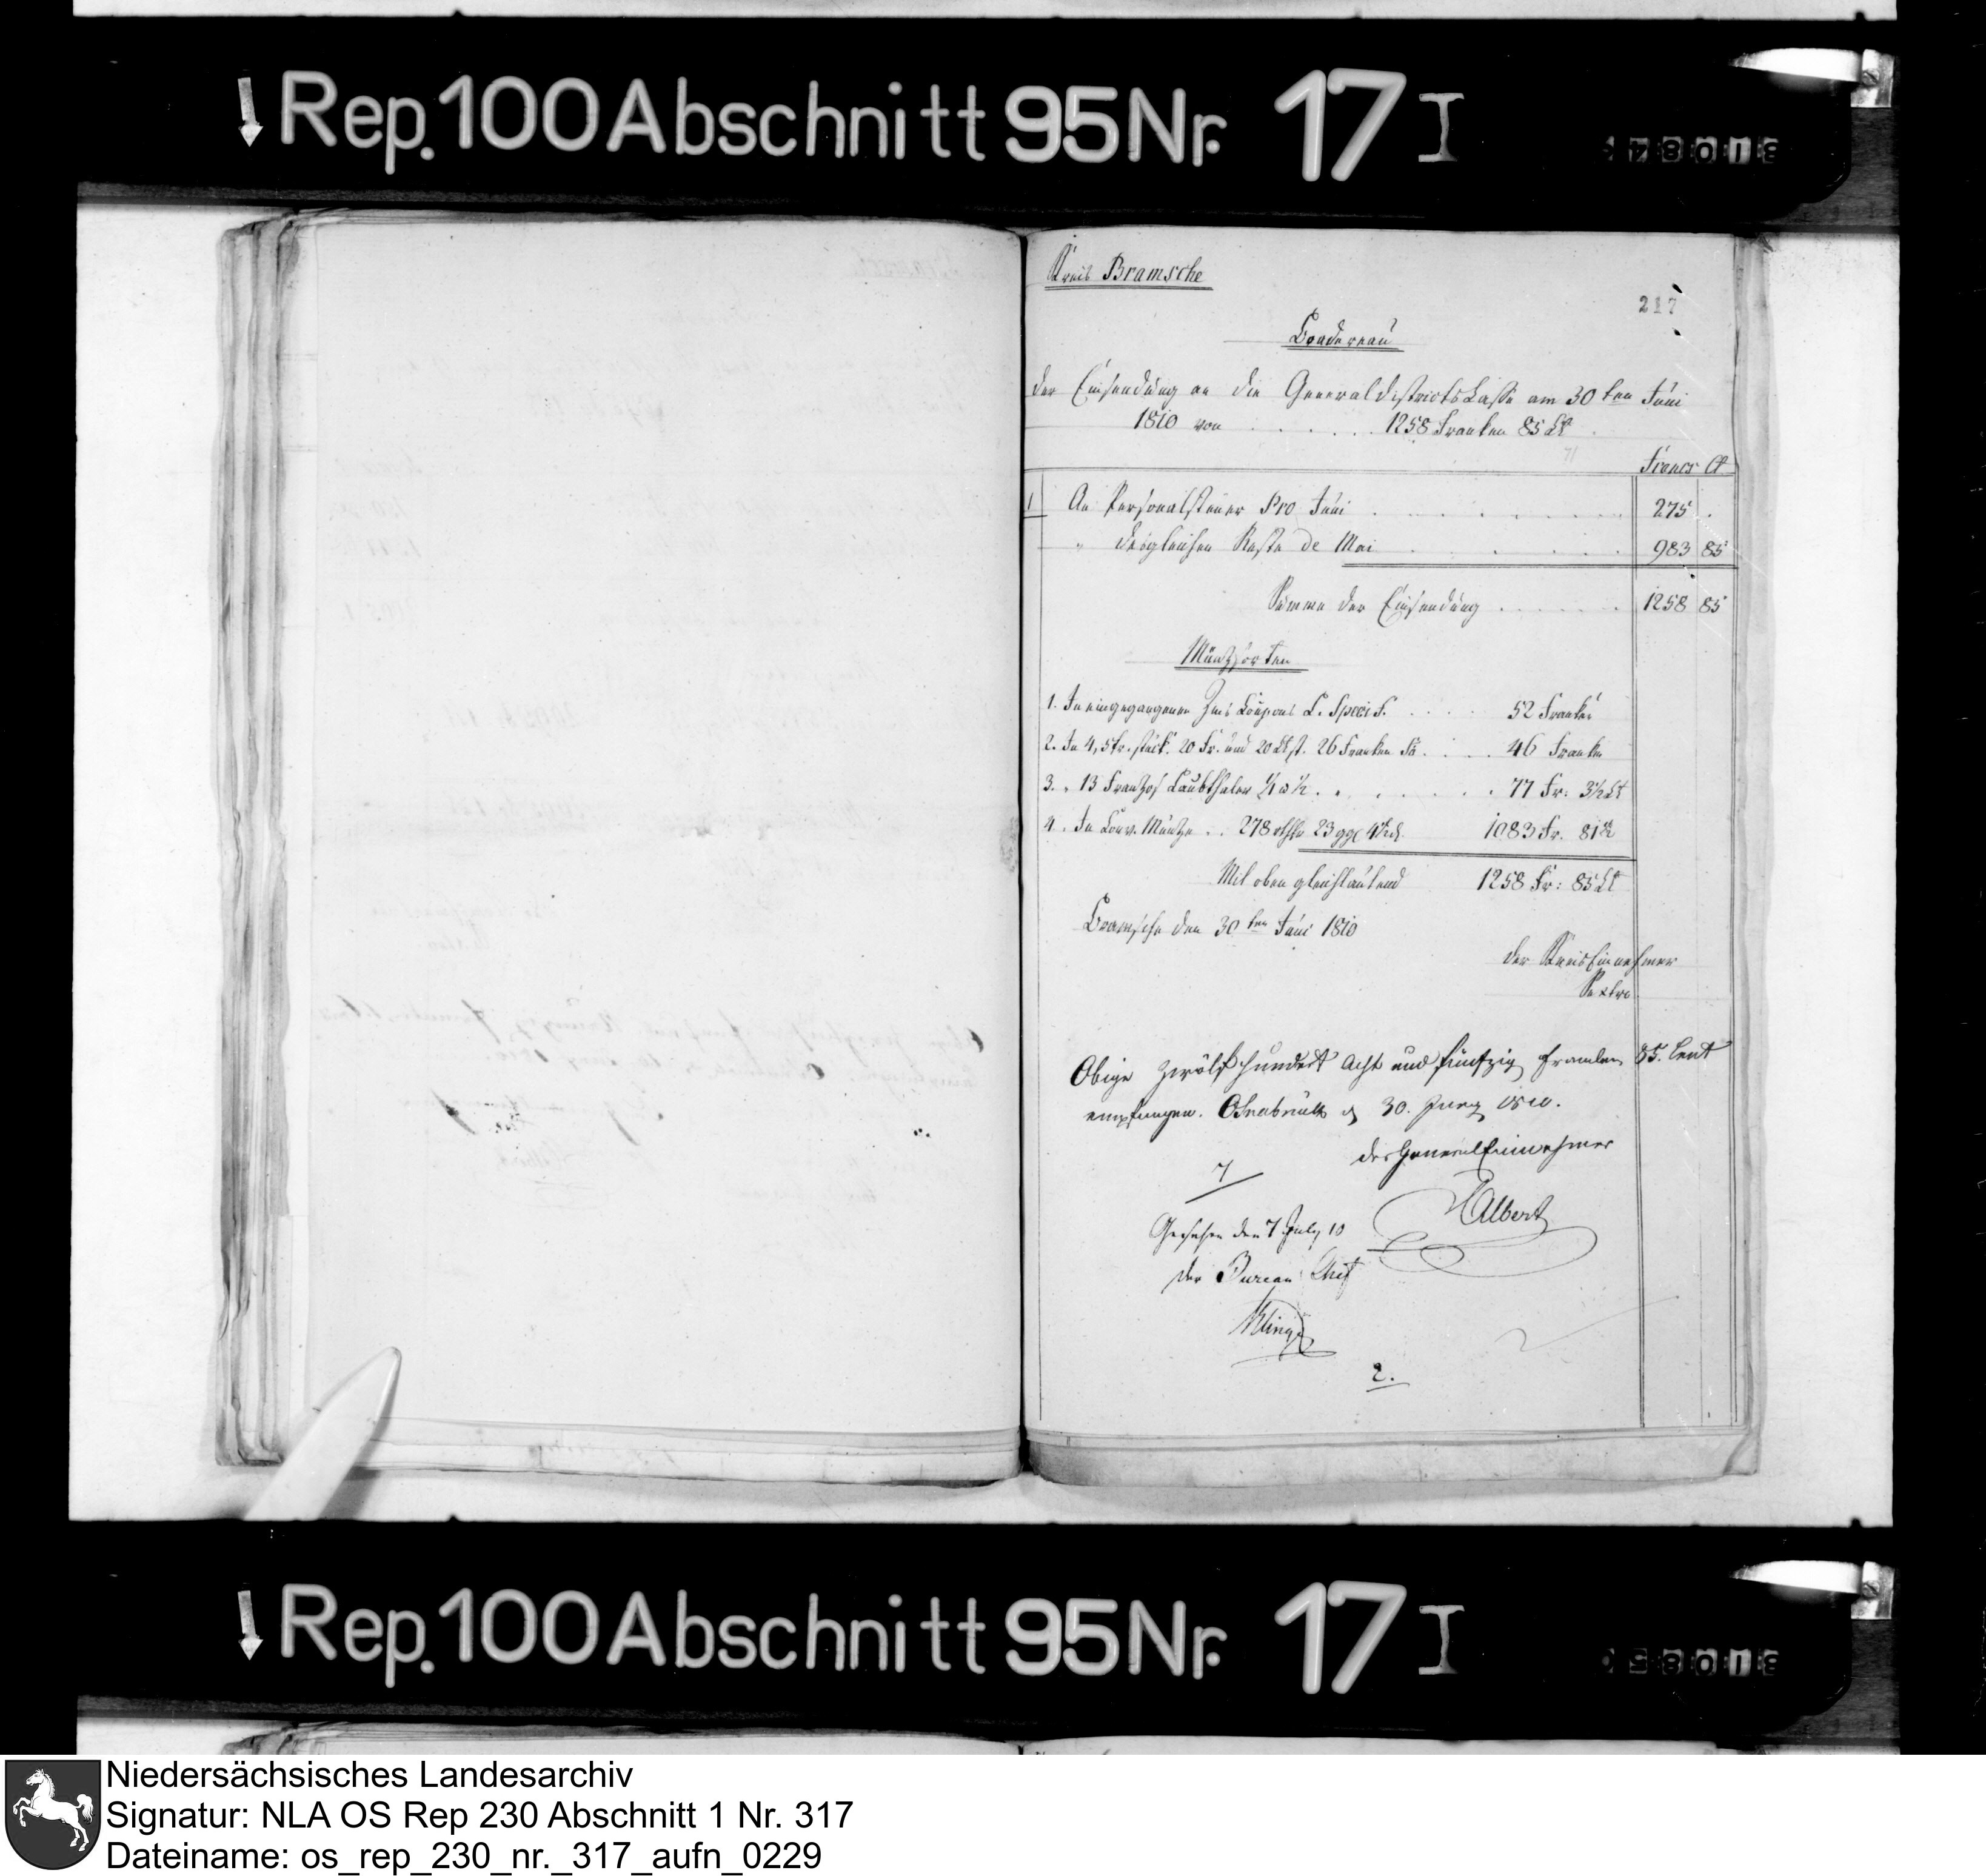 Rep. 100 Abschnitt 95 Nr. 17 I
Kreis Bramsche
217
Bordereau
der Einsendung an die Generaldistrictskasse am 30ten Juni
1810 von . . . . . . 1258 Franken 85 Ct
Francs Ct
1 An Personalsteuer Pro Juni . . . . . . . 275 .
" desgleichen Reste de Mai . . . . 983 85
Summa der Einsendung . . . . . . 1258 85
Müntzsorten
1. In eingegangenen Zins Coupons L. Specif. . . . . 52 Franken
2. In 4, 5 Fr. stück. 20 Fr. und 20 Ct st. 26 Franken . . . . 46 Franken
3. " 13 Franzos Laubthaler 1/1 a 1/2 . . . . . . . 77 Fr: 3½ Ct
4. In Conv. Müntze . . 278 rthlr 23 ggl 4½ d. 1083 Fr. 81½
Mit oben gleichlautend 1258 Fr: 85 Ct
Bramsche den 30ten Juni 1810
der KreisEinnehmer
Obige Zwölfhundert Acht und fünfzig Franken 85. Cent
empfangen. Osnabrück d 30. Juny 1810.
der GeneralEinnehmer
Albert
7
Gesehen den 7 July 10
der Bureau Chef
2.
Rep. 100 Abschnitt 95 Nr. 17 I
Niedersächsisches Landesarchiv
Signatur: NLA OS Rep 230 Abschnitt 1 Nr. 317
Dateiname: os_rep_230_nr._317_aufn_0229